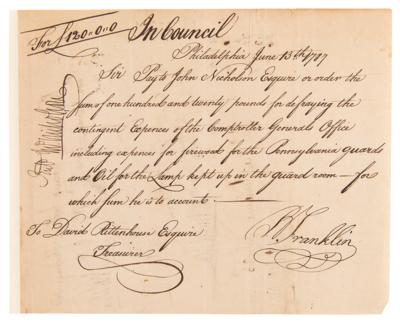 For £120..0..0
In Council
Philadelphia June 13th 1787
Sir Pay to John Nicholson Esquire or order the
Sum of one hundred and twenty pounds for defraying the
contingent Expences of the Comptroller Generals Office
including expences for firewood for the Pennsylvania guards
and Oil for the Lamp kept up in the guard room — for
which sum he is to account.
To David Rittenhouse Esquire
Treasurer
B Franklin
Jno Nicholson